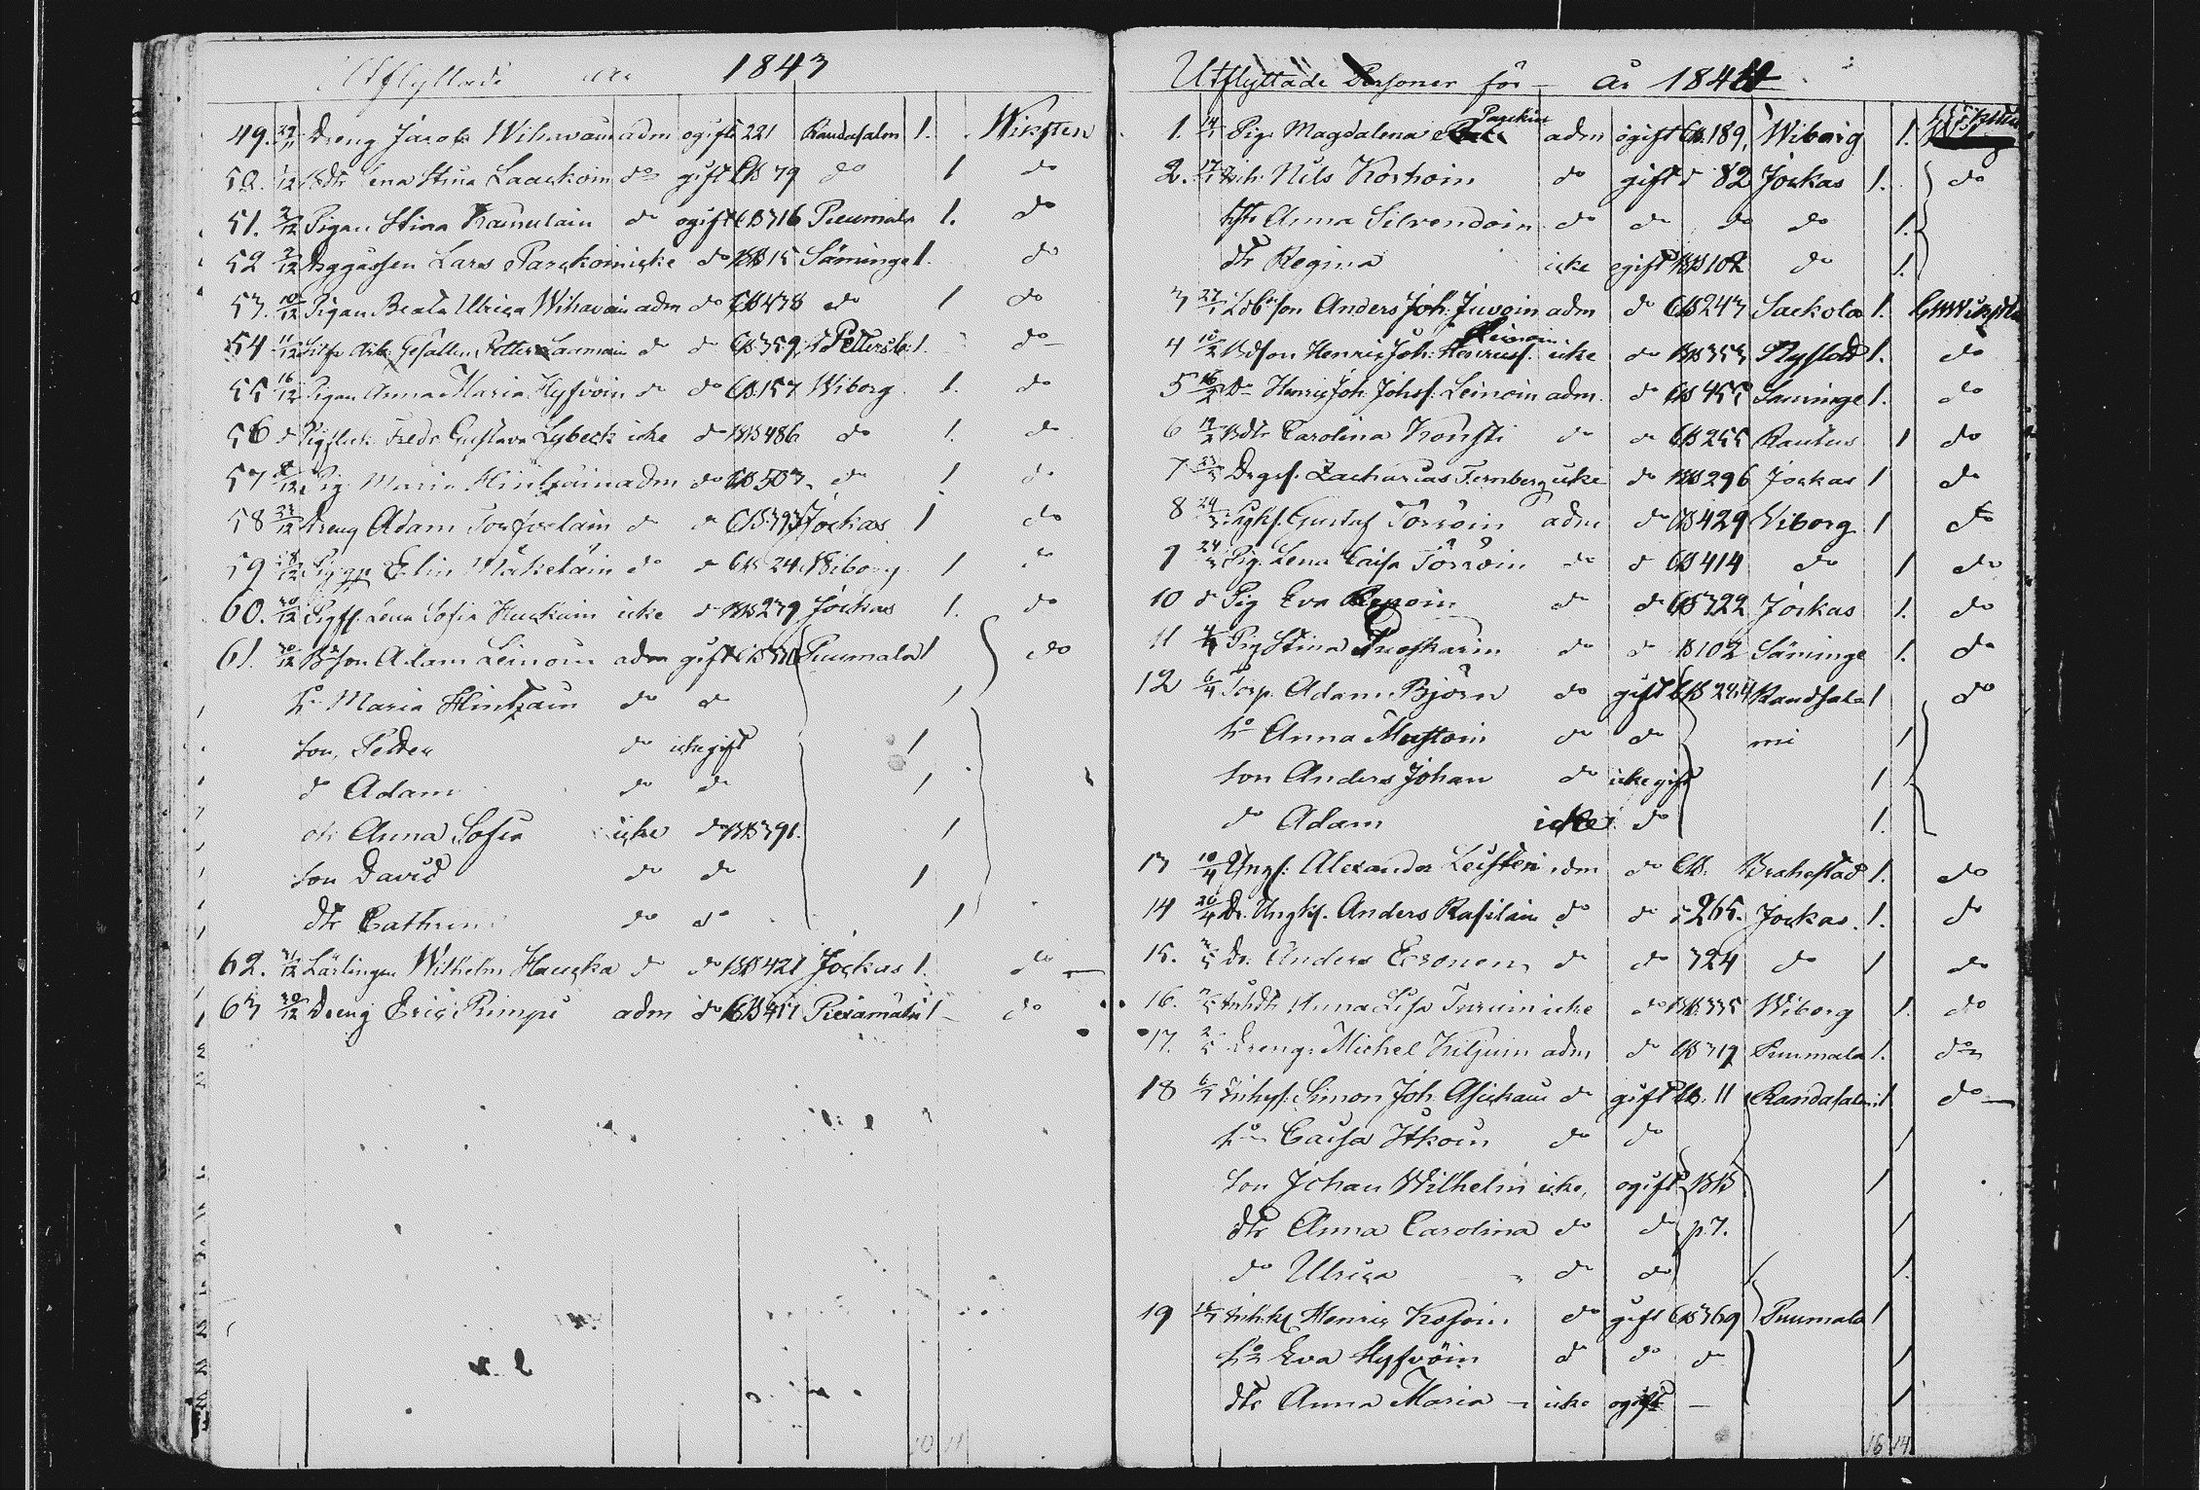 Utflyttade 1843
49. 29/11 Dreng Jacob Wihavain adm ogift 221 Randasalmi 1. Wirsten
50. /12 Bdtr Lena Stina Laackoin do gift CB 79 do 1 do
51. 2/12 Pigan Stina do ogift CB 316 Puumala 1. do
52 2/12 Lars Parckoin icke do BB 15 Säminge 1. do
53. 10/12 Pigan Beata Ulrica Wihavain adm do CB 438 do 1 do
54 11/12 Gesällen Petter Laumain do do CB 359 St Petersb. 1. do
55 16/12 Pigan Anna Maria Hyfvöin do do CB. 157 Wiborg 1. do
56 do Fredr Gustava Lybeck icke do BB 486 do 1. do
57 /12 Pig Maria Hintzain adm do CB 503. do 1 do
58 23/12 Dreng Adam do do CB 393 Jockas 1 do
59 /12 Elin Mäkeläin do do CB 24 Wiborg 1 do
60. 30/12 Lena Sofia Huckain icke do BB 279 Jockas 1. do
61. 30/12 Bson Adam Leinoin adm gift CB Puumala 1 do
ho Maria Hintzain do do 1
son, Petter do icke gift 1
do Adam do do 1
dr Anna Sofia icke do BB 391. 1
son David do do 1
dtr Cathrin do do 1
62. 31/12 Lärlingen Wilhelm Hauska do do BB 421 Jockas 1. do
63 30/12 Dreng Eric Rimpi adm do CB 411 1 do
10 11
Utflyttade Personer för år 1844
1. 14/1 Pig. Magdalena Parckin adm ogift CB. 189, Wiborg 1.
2. 17/1 Inh. Nils Korhoin do gift do 82 Jockas 1. do
hst Anna Silvendoin do do do do 1.
dtr Regina icke ogift BB 102 do 1.
3 27/1 Anders Joh. Juvoin adm do CB 243 Sackola 1.
4 10/2 Bdson Henric Joh. icke do BB 353 Nyslott 1. do
5 16/2 do Henric Joh. Johsf. Leinoin adm. do CB 455 Säminge 1. do
6 19/2 Bdtr Carolina Konsti do do CB 255 Rautus 1 do
7 23/ Drgsf. Zacharias Fernberg icke do BB 296 Jockas 1 do
8 24/ Gustaf Törröin adm do CB 429 Wiborg 1 do
9 24/ Pig. Lena Caisa Törröin do do CB 414 do 1 do
10 do Pig Eva Repoin do do CB 322 Jockas 1. do
11 4/4 Pig Stina do do B 102 Säminge 1. do
12 6/4 Torp. Adam Björn do gift CB 284 Randsal 1 do
ho Anna Mustoin do do mi 1
son Anders Johan do icke gift 1
do Adam icke do 1.
13 10/4 Alexander Leisten adm do CB. Brahestad 1. do
14 20/4 Dr. Ungk. Anders Rasilain do do 265. Jockas. 1. do
15. /5 Do. Anders Eronen do do 324 do 1 do
16. /5 Inhdtr Anna Lisa icke do BB. 335 Wiborg 1. do
17. 2/5 Dreng. Michel Kiljuin adm do CB 319 Puumala 1. do
18 6/ Inhys. Simon Joh. Asickain do gift CB. 11 Randasalmi 1 do
ho Caisa Itkoin do do 1
son Johan Wilhelm icke, ogift BB 1
dtr Anna Carolina do do p 7. 1
do Ulrica do do 1.
19 Henric Kosoin do gift CB 369 Puumala 1
ho Eva Hyfvöin do do do 1
dtr Anna Maria icke ogift 1
16 14